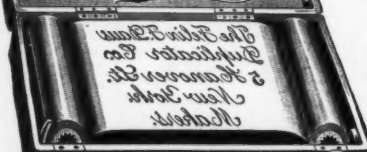 The Felix F. Daus
Duplicator Co's
5 Hanover St.
New York.
Makers.